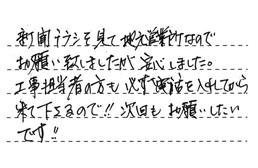 新聞チラシを見て地元営業所なので
お願い致しましたが安心しました。
工事担当者の方も必ず電話を入れてから
来て下さるので!! 次回もお願いしたい
です!!